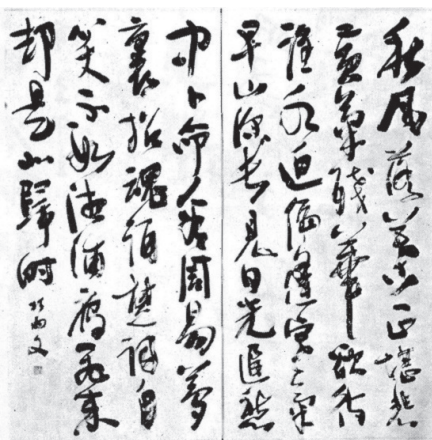 秋風落葉正堪悲
黃菊殘華欲待
誰水近偏逢寒氣
早山深長見日光遲愁
中卜命看周易夢
裏招魂誦楚詞自
笑不如湘浦雁飛來
却是北歸時